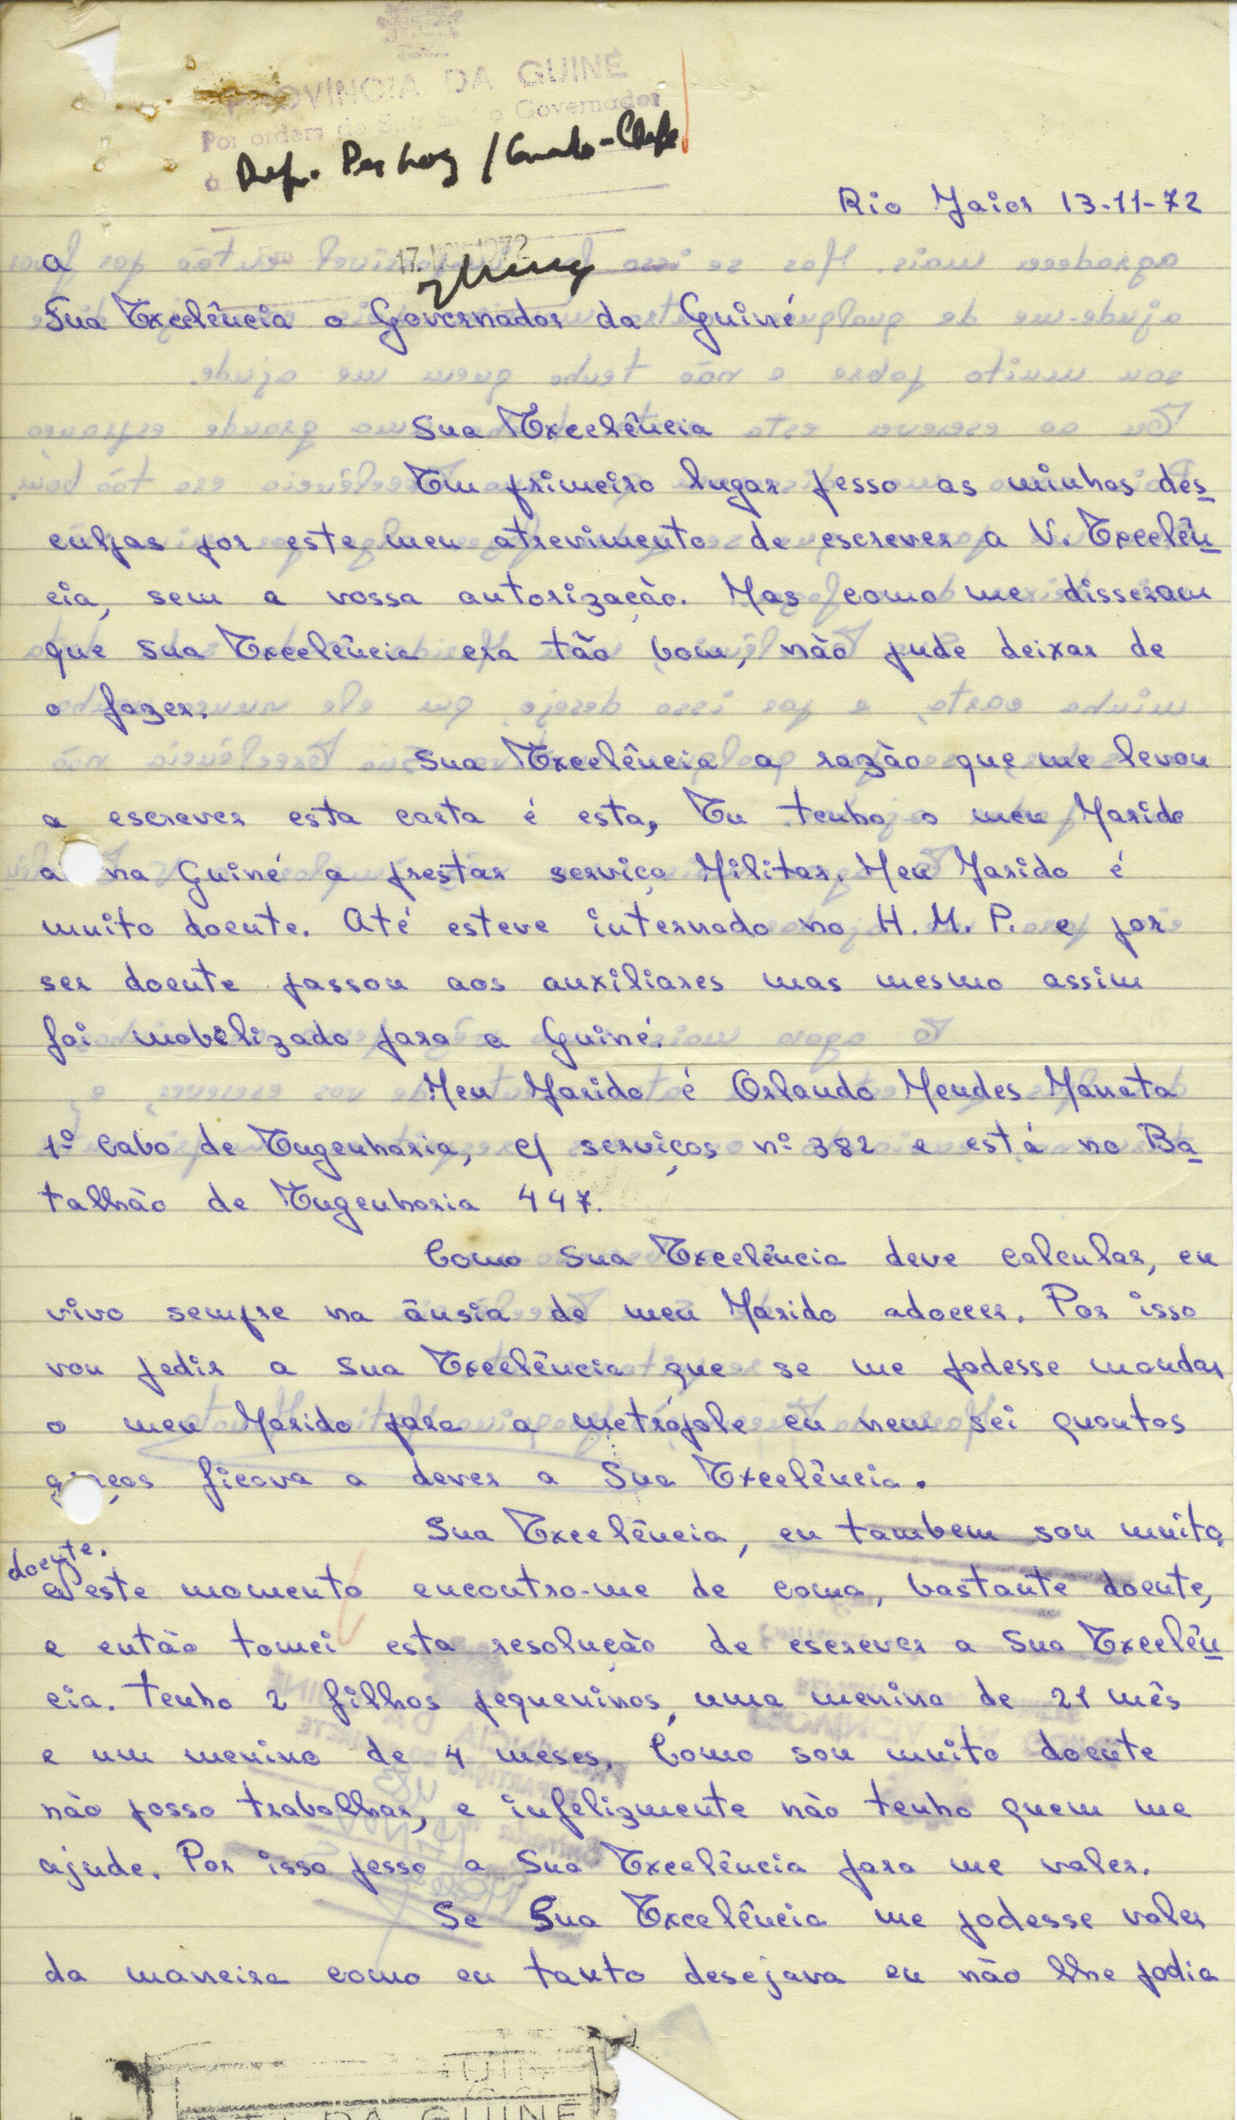 PROVÍNCIA DA GUINÉ
Por ordem de Sua Ex.ª o Governador
Rio Maior 13-11-72
17 NOV 1972
a
Sua Excelência o Governador da Guiné
Sua Excelência
Em primeiro lugar pesso as minhas des
culpas por este meu atrevimento de escrever a V. Excelên
cia, sem a vossa autorização. Mas como me disseram
que Sua Excelência era tão bom, não pude deixar de
o fazer.
Sua Excelência a razão que me levou
a escrever esta carta é esta, Eu tenho o meu Marido
a na Guiné a prestar serviço Militar. Meu Marido é
muito doente. Até esteve internado no H. M. P. e por
ser doente passou aos auxiliares mas mesmo assim
foi mobilizado para a Guiné.
Meu Marido é Orlando Mendes Manata
1º Cabo de Engenharia, c/ serviços nº 382 e está no Ba
talhão de Engenharia 447.
Como Sua Excelência deve calcular, eu
vivo sempre na ânsia de meu Marido adoecer. Por isso
vou pedir a Sua Excelência que se me podesse mandar
o meu Marido para a metrópole eu nem sei quantos
g ças ficava a dever a Sua Excelência.
Sua Excelência, eu tambem sou muito
doente.
Neste momento encontro-me de cama, bastante doente,
e então tomei esta resolução de escrever a Sua Excelên
cia. Tenho 2 filhos pequeninos, uma menina de 21 mês
e um menino de 4 meses. Como sou muito doente
não posso trabalhar, e infelizmente não tenho quem me
ajude. Por isso pesso a Sua Excelência para me valer.
Se Sua Excelência me podesse valer
da maneira como eu tanto desejava eu não lhe podia
DA GUINÉ